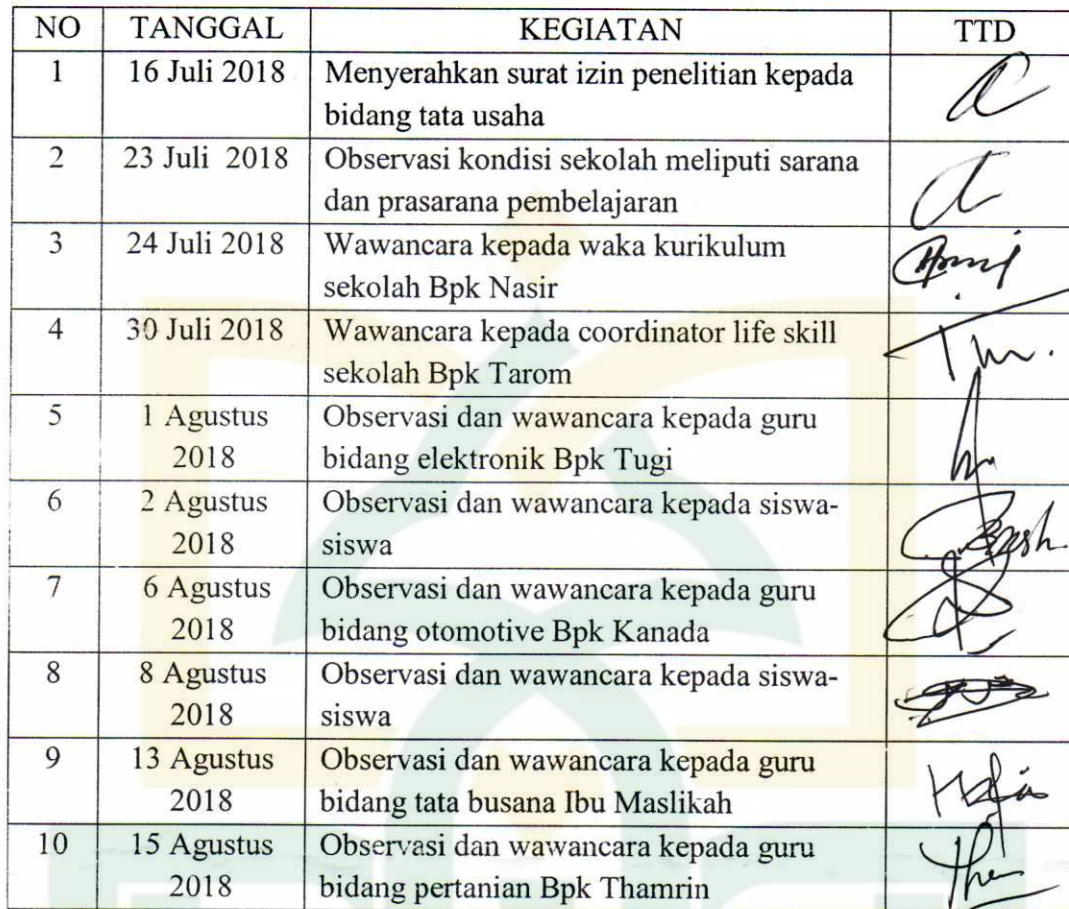 NO TANGGAL KEGIATAN TTD
1 16 Juli 2018 Menyerahkan surat izin penelitian kepada
bidang tata usaha
2 23 Juli 2018 Observasi kondisi sekolah meliputi sarana
dan prasarana pembelajaran
3 24 Juli 2018 Wawancara kepada waka kurikulum
sekolah Bpk Nasir
4 30 Juli 2018 Wawancara kepada coordinator life skill
sekolah Bpk Tarom
5 1 Agustus Observasi dan wawancara kepada guru
2018 bidang elektronik Bpk Tugi
6 2 Agustus Observasi dan wawancara kepada siswa-
2018 siswa
7 6 Agustus Observasi dan wawancara kepada guru
2018 bidang otomotive Bpk Kanada
8 8 Agustus Observasi dan wawancara kepada siswa-
2018 siswa
9 13 Agustus Observasi dan wawancara kepada guru
2018 bidang tata busana Ibu Maslikah
10 15 Agustus Observasi dan wawancara kepada guru
2018 bidang pertanian Bpk Thamrin